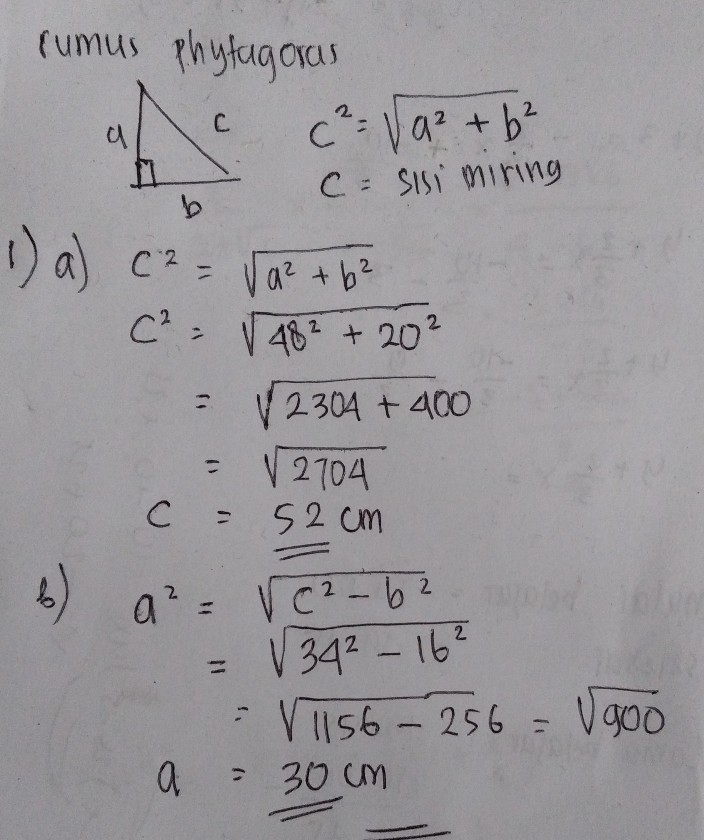 rumus phytagoras
a
c
b
c² = √a² + b²
c = sisi miring
1) a) c² = √a² + b²
c² = √48² + 20²
= √2304 + 400
= √2704
c = 52 cm
b) a² = √c² - b²
= √34² - 16²
= √1156 - 256 = √900
a = 30 cm